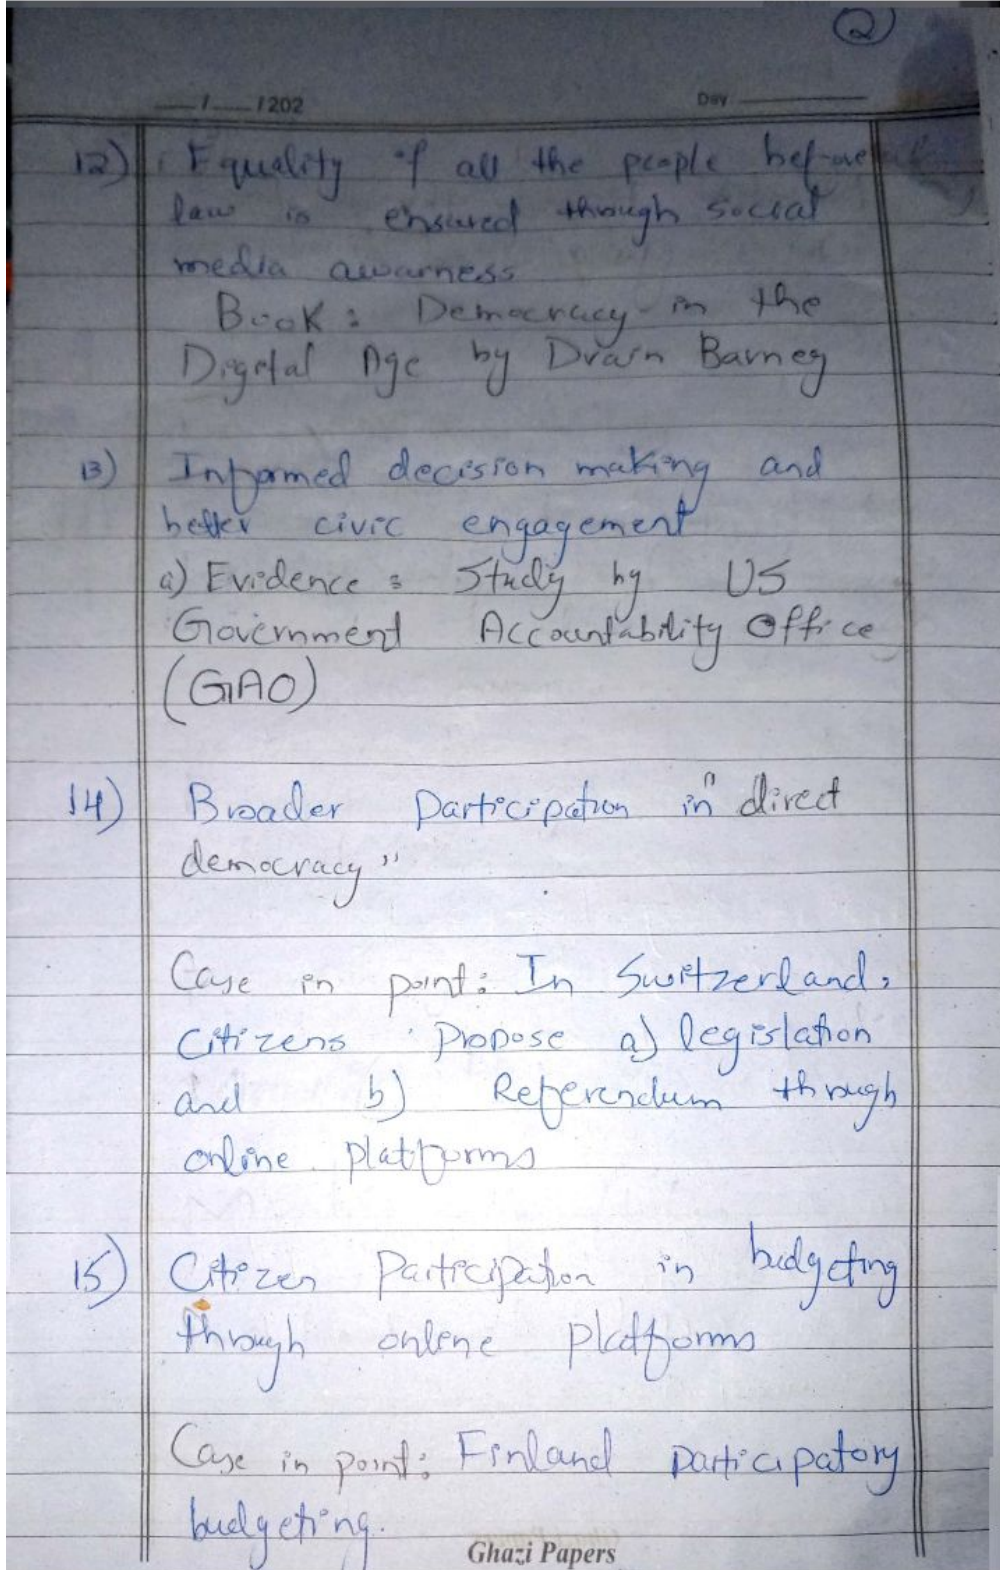 2
__/__/202 Day ______
12) Equality of all the people before
law is ensured through social
media awarness
Book: Democracy in the
Digital Age by Drain Barney
13) Informed decision making and
better civic engagement
a) Evidence: Study by US
Government Accountability Office
(GAO)
14) Broader participation in "direct
democracy"
Case in point: In Switzerland,
citizens propose a) legislation
and b) Referendum through
online platforms
15) Citizen Participation in budgeting
through online platforms
Case in point: Finland participatory
budgeting.
Ghazi Papers